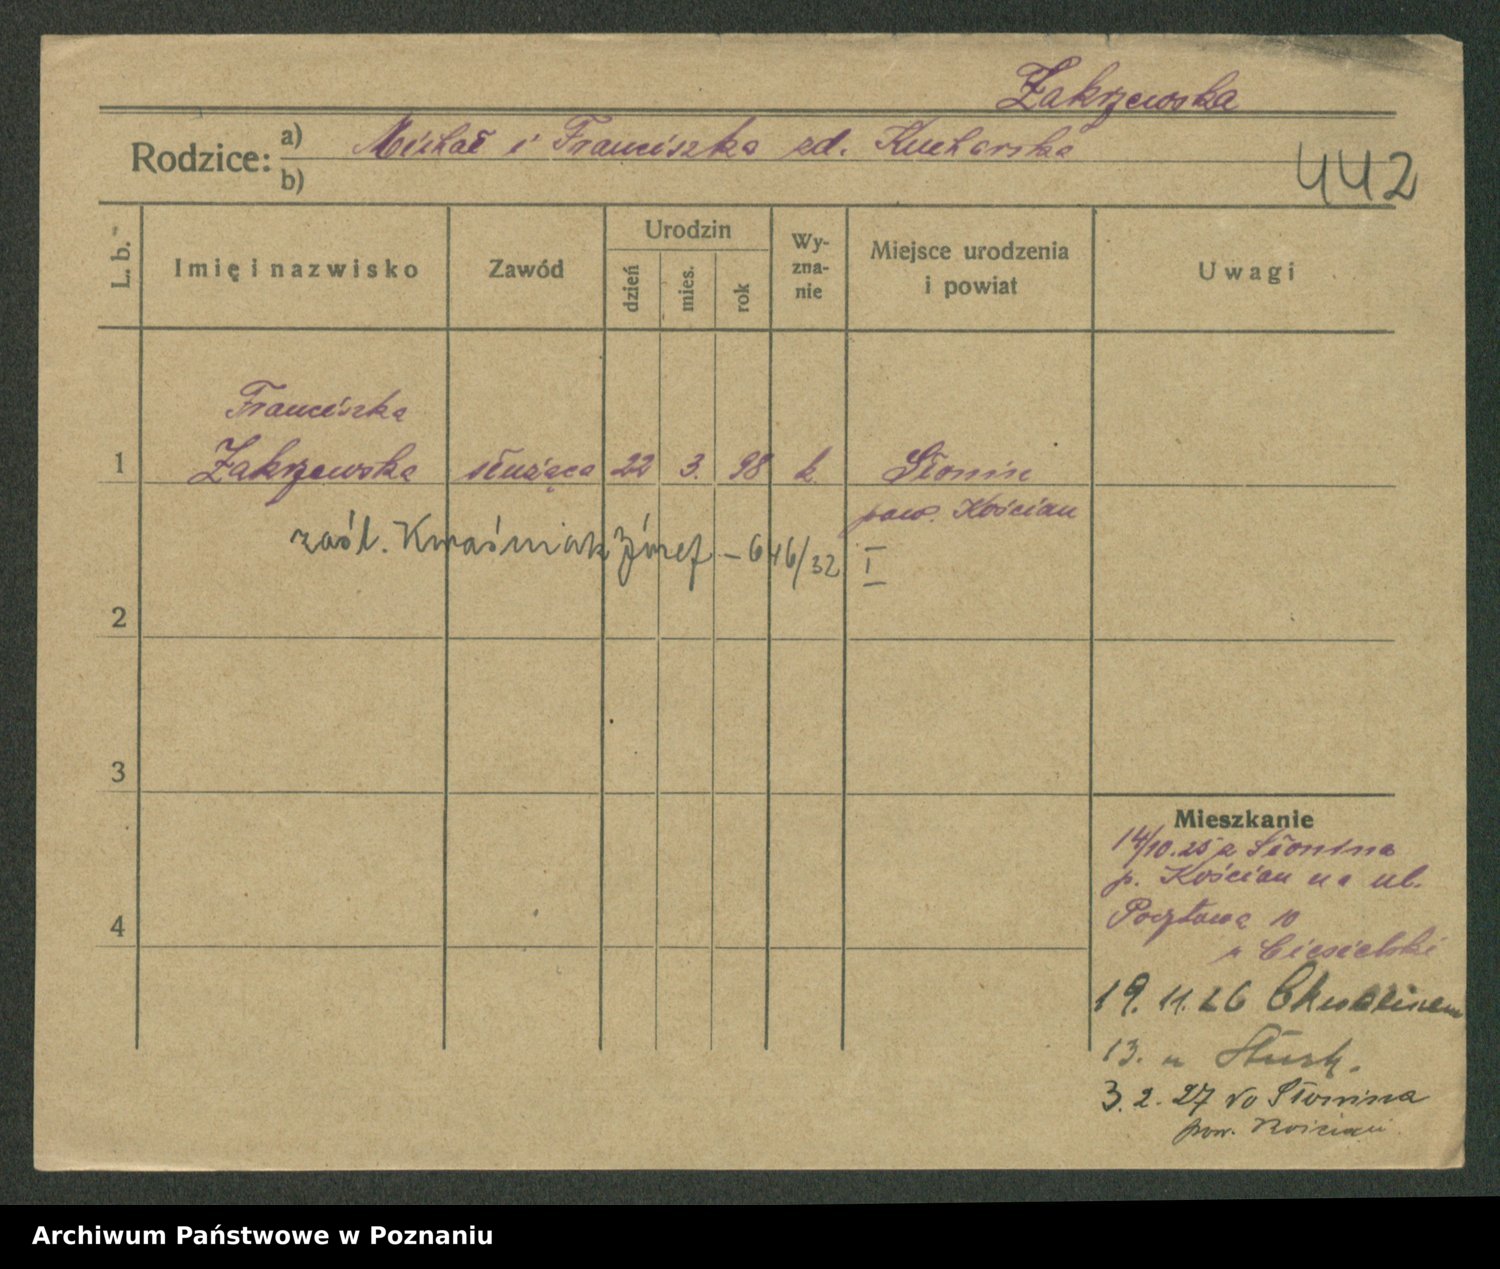 Zakrzewska
Rodzice: a) Michał i Franciszka zd. Kucharska
b)
442
L. b.
Imię i nazwisko
Zawód
Urodzin
dzień
mies.
rok
Wy-
zna-
nie
Miejsce urodzenia
i powiat
Uwagi
Franciszka
1 Zakrzewska służąca 22 3. 98 k. Słonin
pow. Kościan
zaśl. Kwaśniak Józef – 646/32 I
2
3
4
Mieszkanie
14/10.25 z Słonina
p. Kościan na ul.
Pocztową 10
u Ciesielski
19. 11. 26
13. u
3. 2. 27 do Słonina
pow. Kościan
Archiwum Państwowe w Poznaniu